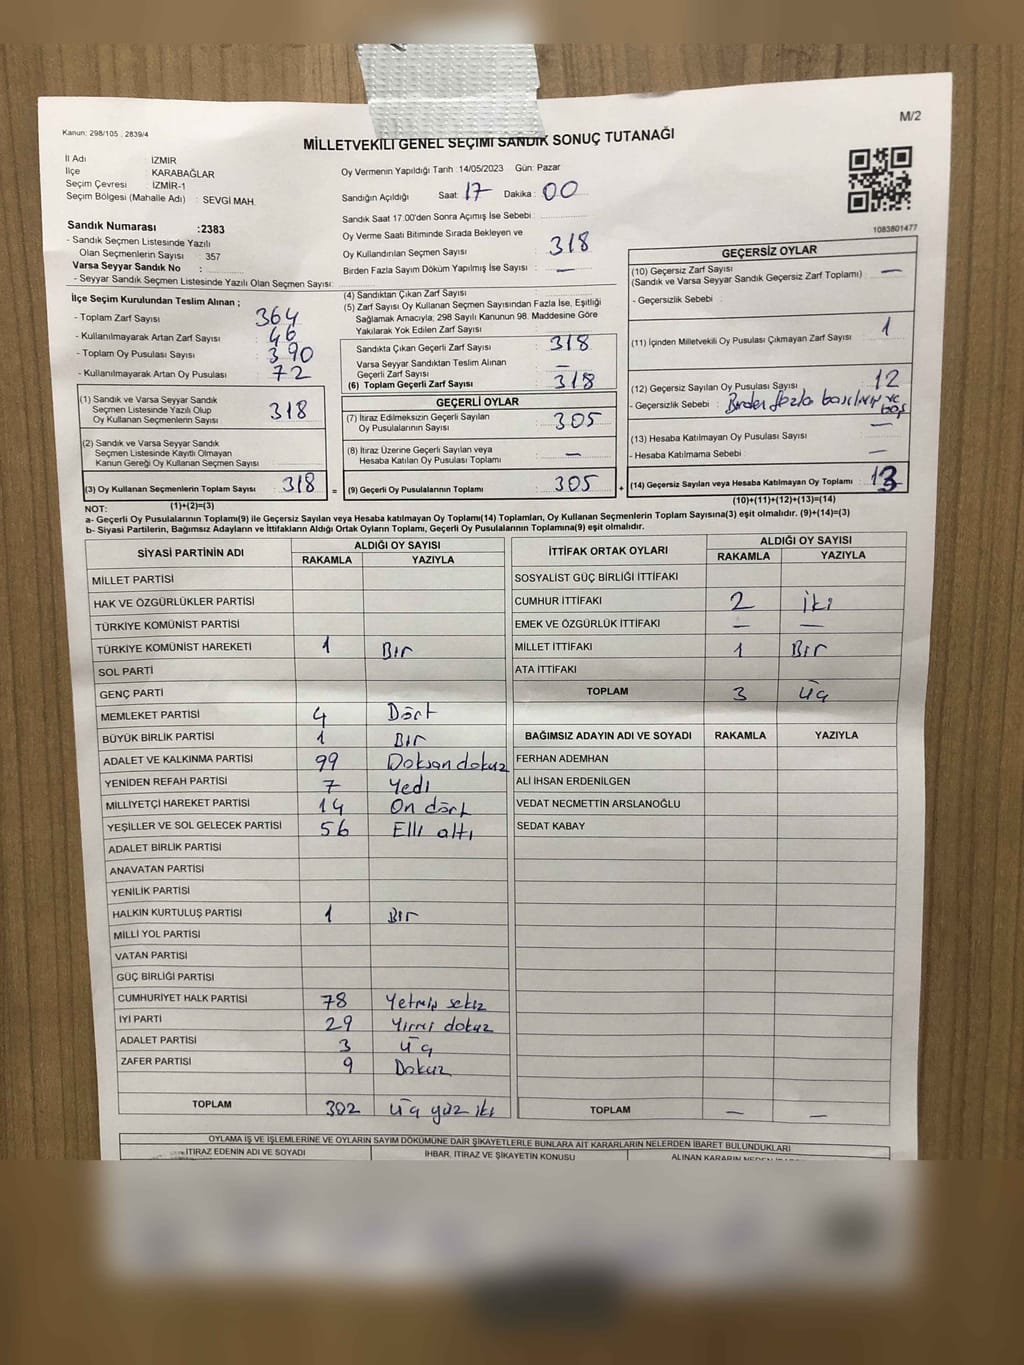 M/2
Kanun: 298/105 , 2839/4
MİLLETVEKİLİ GENEL SEÇİMİ SANDIK SONUÇ TUTANAĞI
İl Adı : İZMİR
İlçe : KARABAĞLAR
Seçim Çevresi : İZMİR-1
Seçim Bölgesi (Mahalle Adı) : SEVGİ MAH.
Sandık Numarası :2383
- Sandık Seçmen Listesinde Yazılı
Olan Seçmenlerin Sayısı : 357
Varsa Seyyar Sandık No :
- Seyyar Sandık Seçmen Listesinde Yazılı Olan Seçmen Sayısı:
Oy Vermenin Yapıldığı Tarih :14/05/2023 Gün: Pazar
Sandığın Açıldığı Saat: 17 Dakika: 00
Sandık Saat 17:00'den Sonra Açımış İse Sebebi :
Oy Verme Saati Bitiminde Sırada Bekleyen ve
Oy Kullandırılan Seçmen Sayısı : 318
Birden Fazla Sayım Döküm Yapılmış İse Sayısı : —
1083801477
İlçe Seçim Kurulundan Teslim Alınan ;
- Toplam Zarf Sayısı : 364
- Kullanılmayarak Artan Zarf Sayısı : 46
- Toplam Oy Pusulası Sayısı : 390
- Kullanılmayarak Artan Oy Pusulası : 72
(1) Sandık ve Varsa Seyyar Sandık
Seçmen Listesinde Yazılı Olup
Oy Kullanan Seçmenlerin Sayısı : 318
(2) Sandık ve Varsa Seyyar Sandık
Seçmen Listesinde Kayıtlı Olmayan
Kanun Gereği Oy Kullanan Seçmen Sayısı :
(3) Oy Kullanan Seçmenlerin Toplam Sayısı : 318
(4) Sandıktan Çıkan Zarf Sayısı :
(5) Zarf Sayısı Oy Kullanan Seçmen Sayısından Fazla İse, Eşitliği
Sağlamak Amacıyla; 298 Sayılı Kanunun 98. Maddesine Göre
Yakılarak Yok Edilen Zarf Sayısı :
Sandıkta Çıkan Geçerli Zarf Sayısı : 318
Varsa Seyyar Sandıktan Teslim Alınan
Geçerli Zarf Sayısı : —
(6) Toplam Geçerli Zarf Sayısı : 318
GEÇERLİ OYLAR
(7) İtiraz Edilmeksizin Geçerli Sayılan
Oy Pusulalarının Sayısı : 305
(8) İtiraz Üzerine Geçerli Sayılan veya
Hesaba Katılan Oy Pusulası Toplamı : —
= (9) Geçerli Oy Pusulalarının Toplamı : 305
GEÇERSİZ OYLAR
(10) Geçersiz Zarf Sayısı : —
(Sandık ve Varsa Seyyar Sandık Geçersiz Zarf Toplamı)
- Geçersizlik Sebebi :
(11) İçinden Milletvekili Oy Pusulası Çıkmayan Zarf Sayısı : 1
(12) Geçersiz Sayılan Oy Pusulası Sayısı : 12
- Geçersizlik Sebebi : Birden fazla basılmış ve boş
(13) Hesaba Katılmayan Oy Pusulası Sayısı : —
- Hesaba Katılmama Sebebi : —
+ (14) Geçersiz Sayılan veya Hesaba Katılmayan Oy Toplamı : 13
NOT: (1)+(2)=(3)
(10)+(11)+(12)+(13)=(14)
a- Geçerli Oy Pusulaları Toplamı(9) ile Geçersiz Sayılan veya Hesaba katılmayan Oy Toplamı(14) Toplamları, Oy Kullanan Seçmenlerin Toplam Sayısına(3) eşit olmalıdır. (9)+(14)=(3)
b- Siyasi Partilerin, Bağımsız Adayların ve İttifakların Aldığı Ortak Oyların Toplamı, Geçerli Oy Pusulalarının Toplamına(9) eşit olmalıdır.
SİYASİ PARTİNİN ADI ALDIĞI OY SAYISI
RAKAMLA YAZIYLA
MİLLET PARTİSİ
HAK VE ÖZGÜRLÜKLER PARTİSİ
TÜRKİYE KOMÜNİST PARTİSİ
TÜRKİYE KOMÜNİST HAREKETİ 1 Bir
SOL PARTİ
GENÇ PARTİ
MEMLEKET PARTİSİ 4 Dört
BÜYÜK BİRLİK PARTİSİ 1 Bir
ADALET VE KALKINMA PARTİSİ 99 Doksan dokuz
YENİDEN REFAH PARTİSİ 7 Yedi
MİLLİYETÇİ HAREKET PARTİSİ 14 On dört
YEŞİLLER VE SOL GELECEK PARTİSİ 56 Elli altı
ADALET BİRLİK PARTİSİ
ANAVATAN PARTİSİ
YENİLİK PARTİSİ
HALKIN KURTULUŞ PARTİSİ 1 Bir
MİLLİ YOL PARTİSİ
VATAN PARTİSİ
GÜÇ BİRLİĞİ PARTİSİ
CUMHURİYET HALK PARTİSİ 78 Yetmiş sekiz
İYİ PARTİ 29 Yirmi dokuz
ADALET PARTİSİ 3 Üç
ZAFER PARTİSİ 9 Dokuz
TOPLAM 302 Üç yüz iki
İTTİFAK ORTAK OYLARI ALDIĞI OY SAYISI
RAKAMLA YAZIYLA
SOSYALİST GÜÇ BİRLİĞİ İTTİFAKI
CUMHUR İTTİFAKI 2 İki
EMEK VE ÖZGÜRLÜK İTTİFAKI — —
MİLLET İTTİFAKI 1 Bir
ATA İTTİFAKI
TOPLAM 3 Üç
BAĞIMSIZ ADAYIN ADI VE SOYADI RAKAMLA YAZIYLA
FERHAN ADEMHAN
ALİ İHSAN ERDENİLGEN
VEDAT NECMETTİN ARSLANOĞLU
SEDAT KABAY
TOPLAM — —
OYLAMA İŞ VE İŞLEMLERİNE VE OYLARIN SAYIM DÖKÜMÜNE DAİR ŞİKAYETLERLE BUNLARA AİT KARARLARIN NELERDEN İBARET BULUNDUKLARI
İTİRAZ EDENİN ADI VE SOYADI İHBAR, İTİRAZ VE ŞİKAYETİN KONUSU ALINAN KARARIN